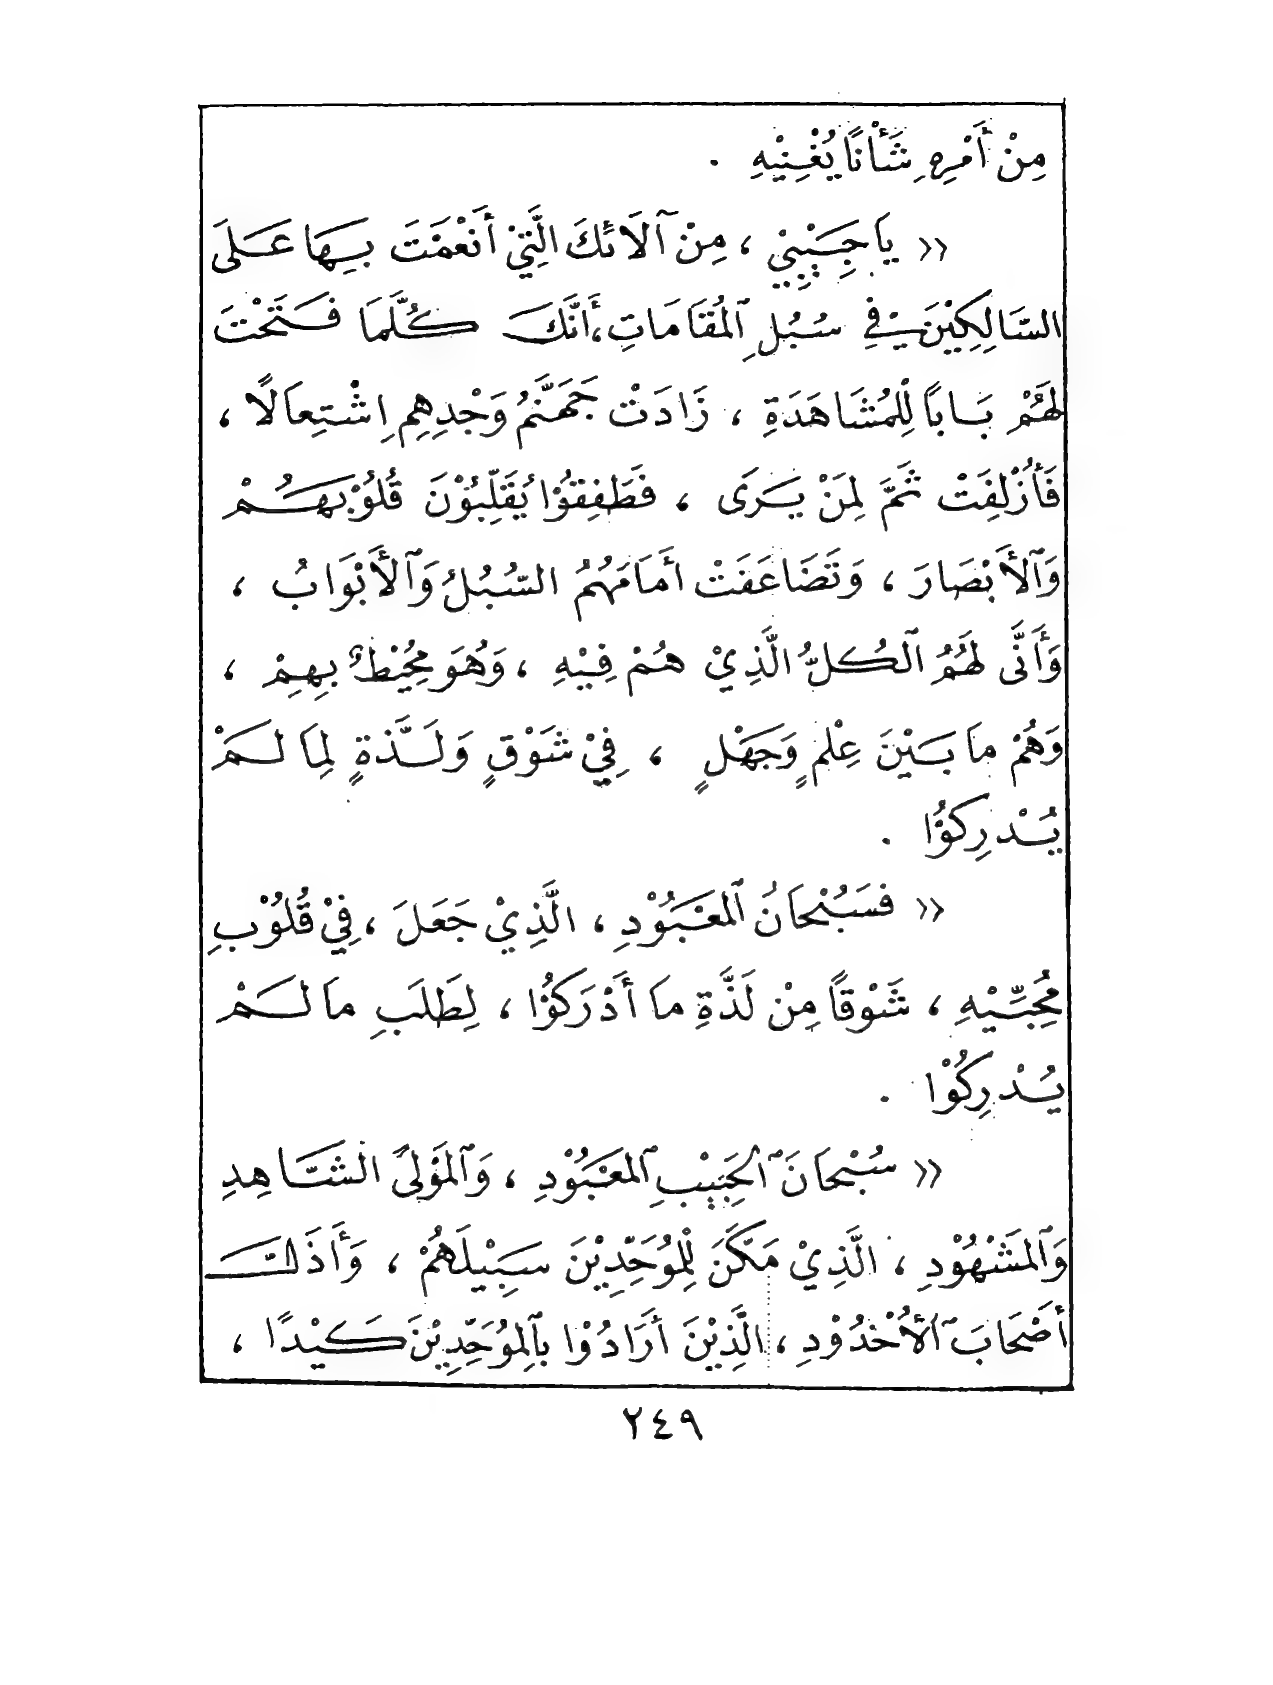 مِنْ أَمْرِهِ شَأْنًا يُغْنِيْهِ .
« يا حَبِيْبِيْ ، مِنْ آلَائِكَ الَّتِيْ أَنْعَمْتَ بِهَا عَلَى
السَّالِكِيْنَ فِيْ سُبُلِ ٱلمُقَامَاتِ ، أَنَّكَ كُلَّمَا فَتَحْتَ
لَهُمْ بَابًا لِلْمُشَاهَدَةِ ، زَادَتْ جَهَنَّمُ وَجْدِهِمِ اشْتِعَالًا ،
فَأُزْلِفَتْ ثَمَّ لِمَنْ يَرَى ، فَطَفِقُوْا يُقَلِّبُوْنَ قُلُوْبَهُمْ
وَٱلأَبْصَارَ ، وَتَضَاعَفَتْ أَمَامَهُمُ السُّبُلُ وَٱلأَبْوَابُ ،
وَأَنَّى لَهُمُ ٱلكُلُّ الَّذِيْ هُمْ فِيْهِ ، وَهُوَ مُحِيْطٌ بِهِمْ ،
وَهُمْ مَا بَيْنَ عِلْمٍ وَجَهْلٍ ، فِيْ شَوْقٍ وَلَذَّةٍ لِمَا لَمْ
يُدْرِكُوْا .
« فَسُبْحَانَ ٱلمَعْبُوْدِ ، الَّذِيْ جَعَلَ ، فِيْ قُلُوْبِ
مُحِبِّيْهِ ، شَوْقًا مِنْ لَذَّةِ مَا أَدْرَكُوْا ، لِطَلَبِ مَا لَمْ
يُدْرِكُوْا .
« سُبْحَانَ ٱلحَبِيْبِ ٱلمَعْبُوْدِ ، وَٱلمَوْلَى الشَّاهِدِ
وَٱلمَشْهُوْدِ ، الَّذِيْ مَكَّنَ لِلْمُوَحِّدِيْنَ سَبِيْلَهُمْ ، وَأَذَلَّ
أَصْحَابَ ٱلأُخْدُوْدِ ، الَّذِيْنَ أَرَادُوْا بِٱلمُوَحِّدِيْنَ كَيْدًا ،
٢٤٩